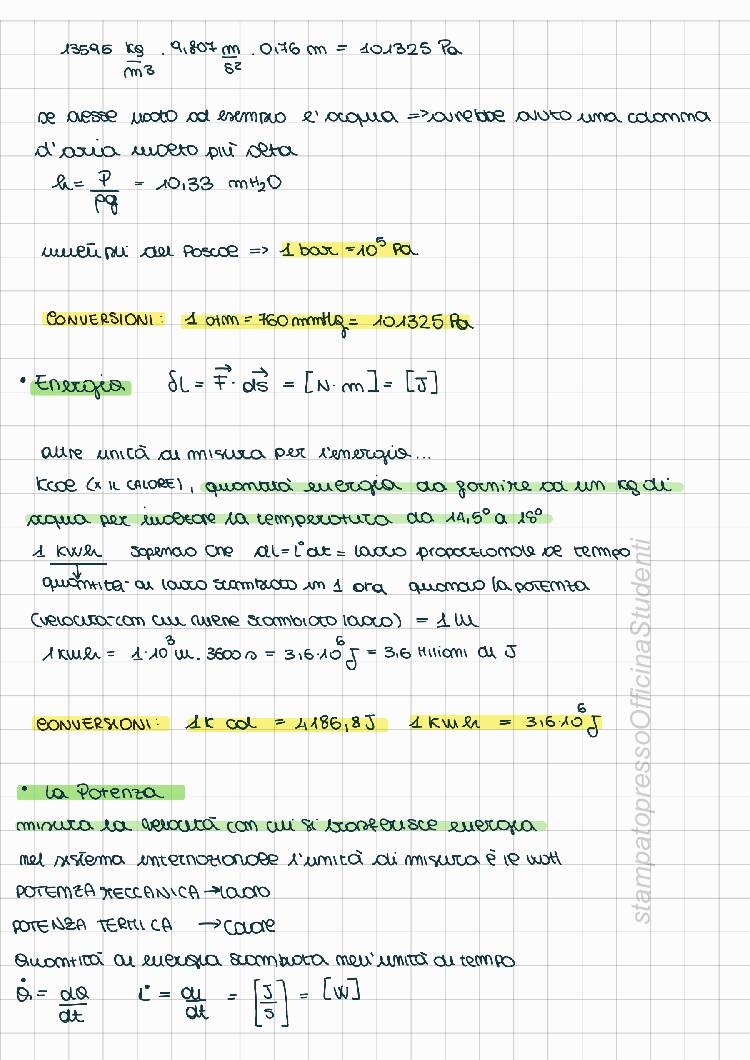 13595 kg/m³ · 9,807 m/s² · 0,76 m = 101325 Pa
se avesse usato ad esempio l'acqua => avrebbe avuto una colonna
d'aria molto più alta
h = P/ρg = 10,33 mH₂O
multipli del Pascal => 1 bar = 10⁵ Pa
CONVERSIONI: 1 atm = 760 mmHg = 101325 Pa
• Energia δL = F⃗ · ds⃗ = [N·m] = [J]
altre unità di misura per l'energia...
Kcal (x IL CALORE), quantità energia da fornire ad un kg di
acqua per innalzare la temperatura da 14,5° a 18°
1 kWh sapendo che dL = L° dt = lavoro proporzionale al tempo
quantità di lavoro scambiato in 1 ora quando la POTENZA
(velocità con cui viene scambiato lavoro) = 1W
1 kWh = 1·10³ W · 3600 s = 3,6·10⁶ J = 3,6 Milioni di J
CONVERSIONI: 1k cal = 4186,8 J 1 kWh = 3,6·10⁶ J
• La Potenza
misura la velocità con cui si trasferisce energia
nel sistema internazionale l'unità di misura è il watt
POTENZA MECCANICA → lavoro
POTENZA TERMICA → calore
Quantità di energia scambiata nell'unità di tempo
Q̇ = dQ/dt L° = dL/dt = [J/s] = [W]
stampatopressoOfficinaStudenti